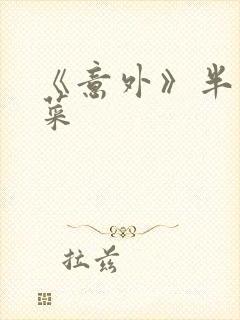 《意外》半
菜
拉兹